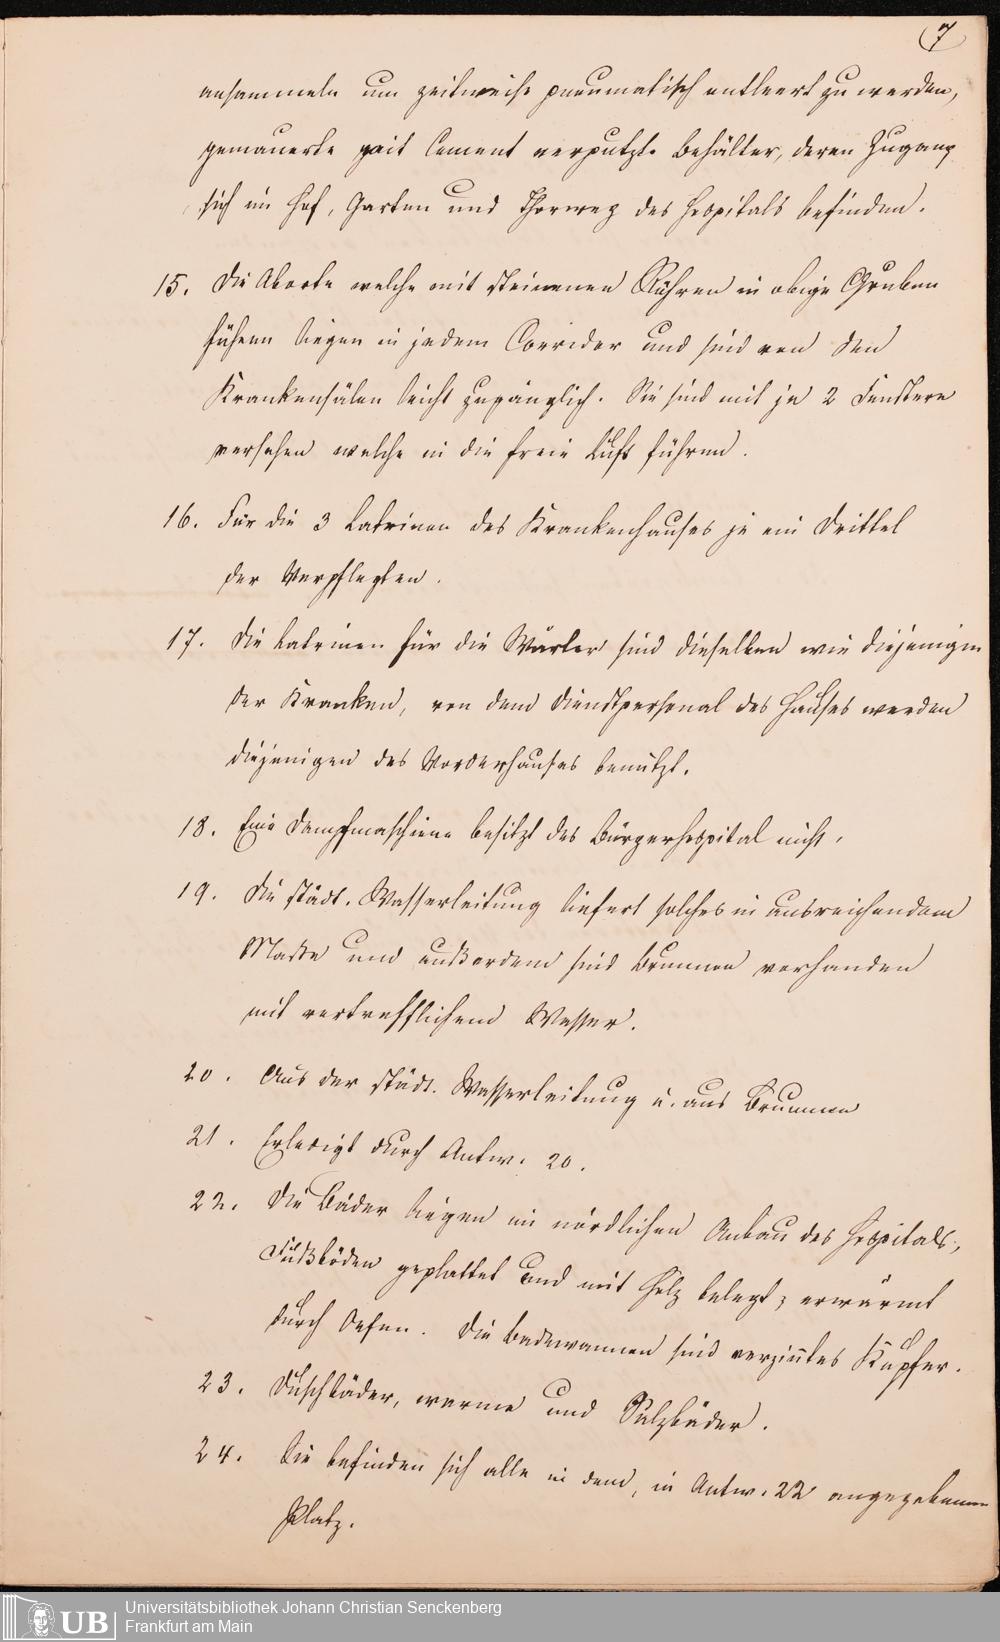 7
ansammeln um zeitweise pneumatisch entleert zu werden,
gemauerte mit Cement verputzte Behälter, deren Zugang
sich im Hof, Garten und Thorweg des Hospitals befinden.
15. Die Aborte welche mit steinernen Röhren in obige Gruben
führen liegen in jedem Corridor und sind von den
Krankensälen leicht zugänglich. Sie sind mit je 2 Fenstern
versehen welche in die freie Luft führen.
16. Für die 3 Latrinen des Krankenhauses je ein Drittel
der Verpflegten.
17. Die Latrinen für die Wärter sind dieselben wie diejenigen
der Kranken, von dem Dienstpersonal des Hauses werden
diejenigen des Vorderhauses benützt.
18. Eine Dampfmaschiene besitzt das Bürgerhospital nicht.
19. Die städt. Wasserleitung liefert solches in ausreichendem
Maße und außerdem sind Brunnen vorhanden
mit vortrefflichem Wasser.
20. Aus der städt. Wasserleitung u. aus Brunnen
21. Erledigt durch Antw. 20.
22. Die Bäder liegen im nördlichen Anbau des Hospitals,
Fußböden geplattet und mit Holz belegt; erwärmt
durch Oefen. Die Badewannen sind verzinntes Kupfer.
23. Duschbäder, warme und Salzbäder.
24. Sie befinden sich alle in dem, in Antw. 22 angegebenen
Platz.
UB
Universitätsbibliothek Johann Christian Senckenberg
Frankfurt am Main